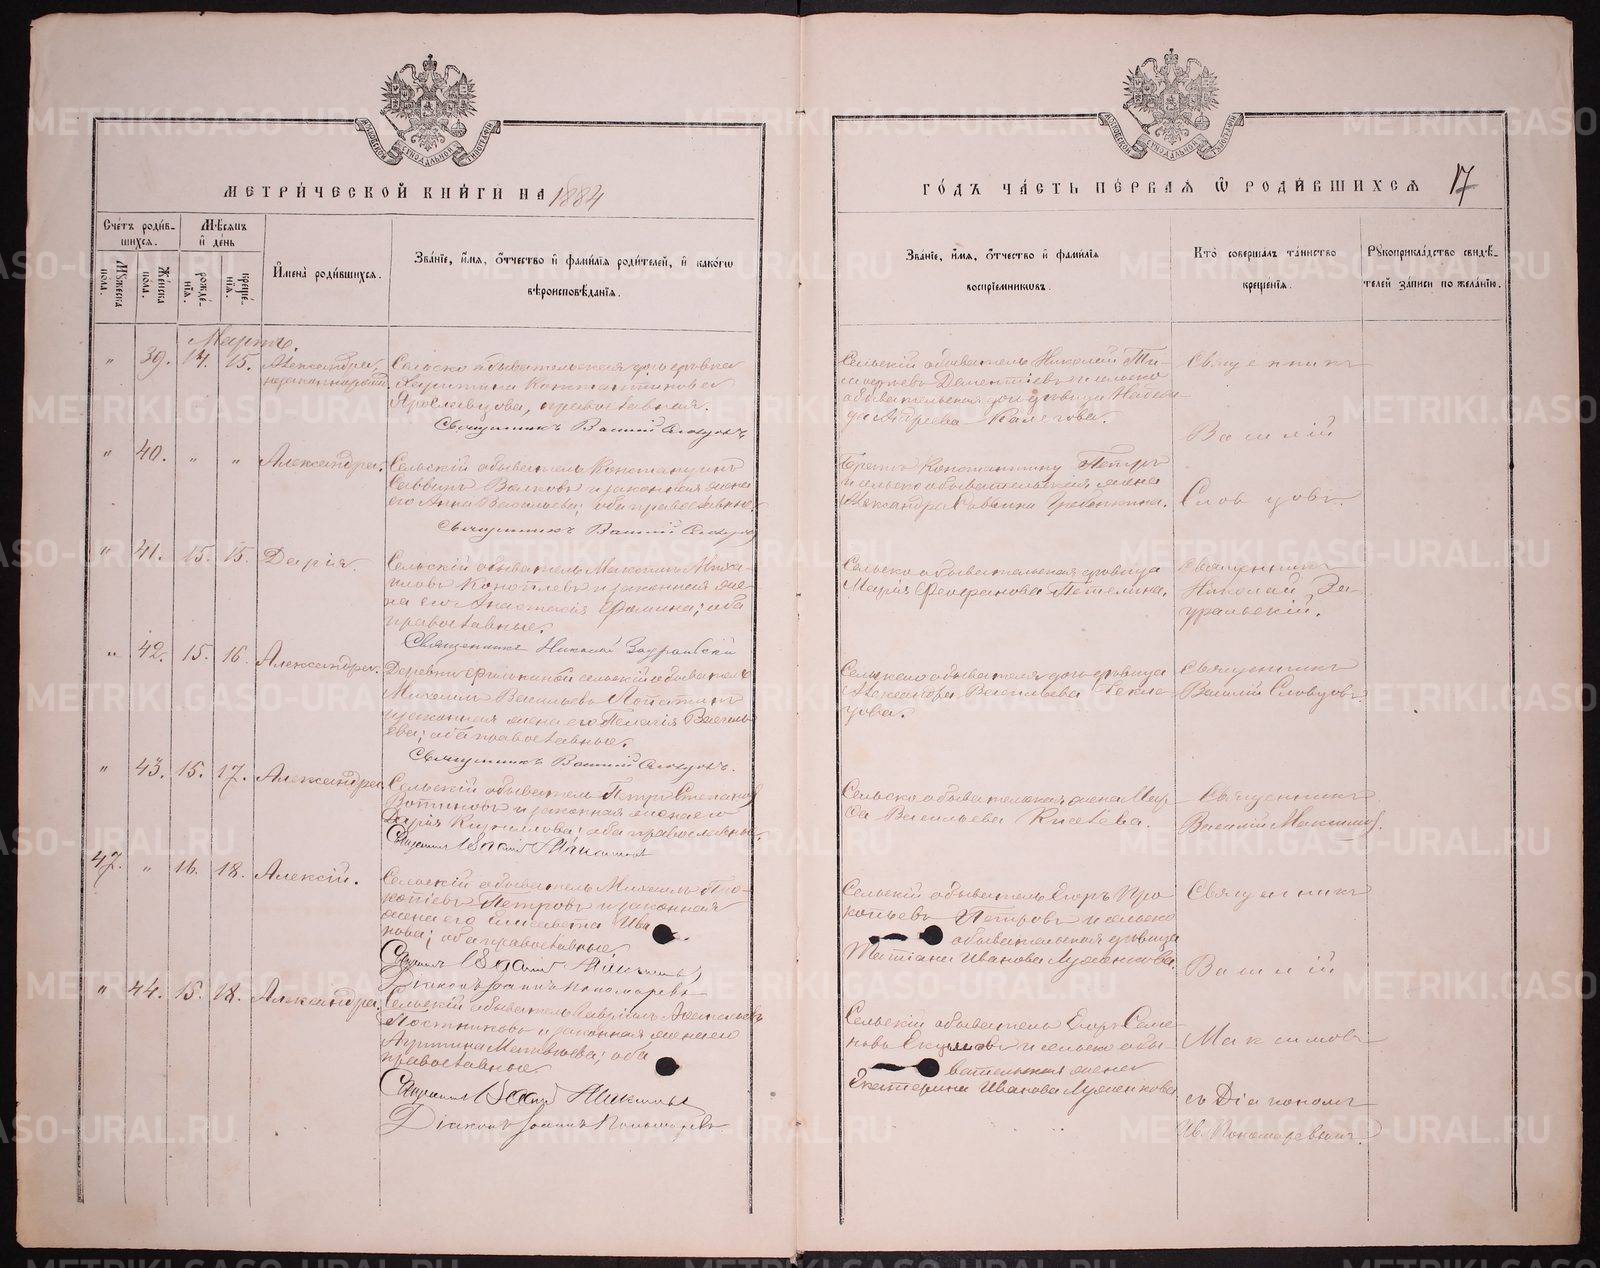 МЕТРИЧЕСКОЙ КНИГИ НА 1884
Счетъ родив-
шихся.
Мѣсяцъ
и день
Мужеска
пола.
Женска
пола.
рожде-
нія.
креще-
нія.
Имена родившихся.
Званіе, имя, отчество и фамилія родителей, и какогѡ
вѣроисповѣданія.
Мартъ.
" 39. 14. 15. Александра,
незаконнорожд.
Сельско обывательская дочь дѣвка
Харитина Константинова
Ярославцова, православная.
Священникъ Василій Словцовъ
" 40. " " Александра.
Сельскій обыватель Константинъ
Саввинъ Волковъ и законная жена
его Анна Васильева; оба православные.
Священникъ Василій Словцовъ
" 41. 15. 15. Дарія.
Сельскій обыватель Максимъ Миха-
иловъ Коноплевъ и законная же-
на его Анастасія Фомина; оба
православные.
Священникъ Николай Зауральскій
" 42. 15. 16. Александра.
Деревни сельскій обыватель
Михаилъ Васильевъ Лопатинъ
и законная жена его Пелагія Василь-
ева; оба православные.
Священникъ Василій Словцовъ.
" 43. 15. 17. Александра.
Сельскій обыватель Петръ Степановъ
и законная жена его
Дарія Кириллова; оба православные.
Священникъ Василій Максимовъ
47. " 16. 18. Алексій.
Сельскій обыватель Михаилъ Про-
копіевъ Петровъ и законная
жена его Елисавета Ива-
нова; оба православные
Священникъ Василій Максимовъ
Діаконъ Іоаннъ Пономаревъ
" 44. 15. 18. Александра.
Сельскій обыватель Гавріилъ
Постниковъ и законная жена его
Матвѣева; оба
православные
Священникъ Василій Максимовъ
Діаконъ Іоаннъ Пономаревъ
ГОДЪ ЧАСТЬ ПЕРВАЯ Ѿ РОДИВШИХСЯ 17
Званіе, имя, отчество и фамилія
воспріемниковъ.
Кто совершалъ таинство
крещенія.
Рукоприкладство свидѣ-
телей записи по желанію.
Сельскій обыватель Николай Ти-
Дементьевъ и сельско
обывательская дочь дѣвица Надеж-
да Андреева
Священникъ
Василій
Словцовъ
Братъ Константину Петръ
и сельскообывательская жена
Александра Саввина Гребенкина.
Сельско обывательская дѣвица
Марія Феофанова Петелина.
Священникъ
Николай За-
уральскій.
Сельско обывателя дочь дѣвица
Александра Васильева
Священникъ
Василій Словцовъ
Сельско обывательская жена
Васильева Киселева.
Священникъ
Василій Максимовъ.
Сельскій обыватель Егоръ Про-
копьевъ Петровъ и сельско
обывательская дѣвица
Татіана Иванова
Священникъ
Василій
Сельскій обыватель Егоръ Семе-
новъ и сельско обы-
вательская жена
Екатерина Иванова
Максимовъ
съ Діакономъ
Ів. Пономаревымъ.
METRIKI.GASO-URAL.RU